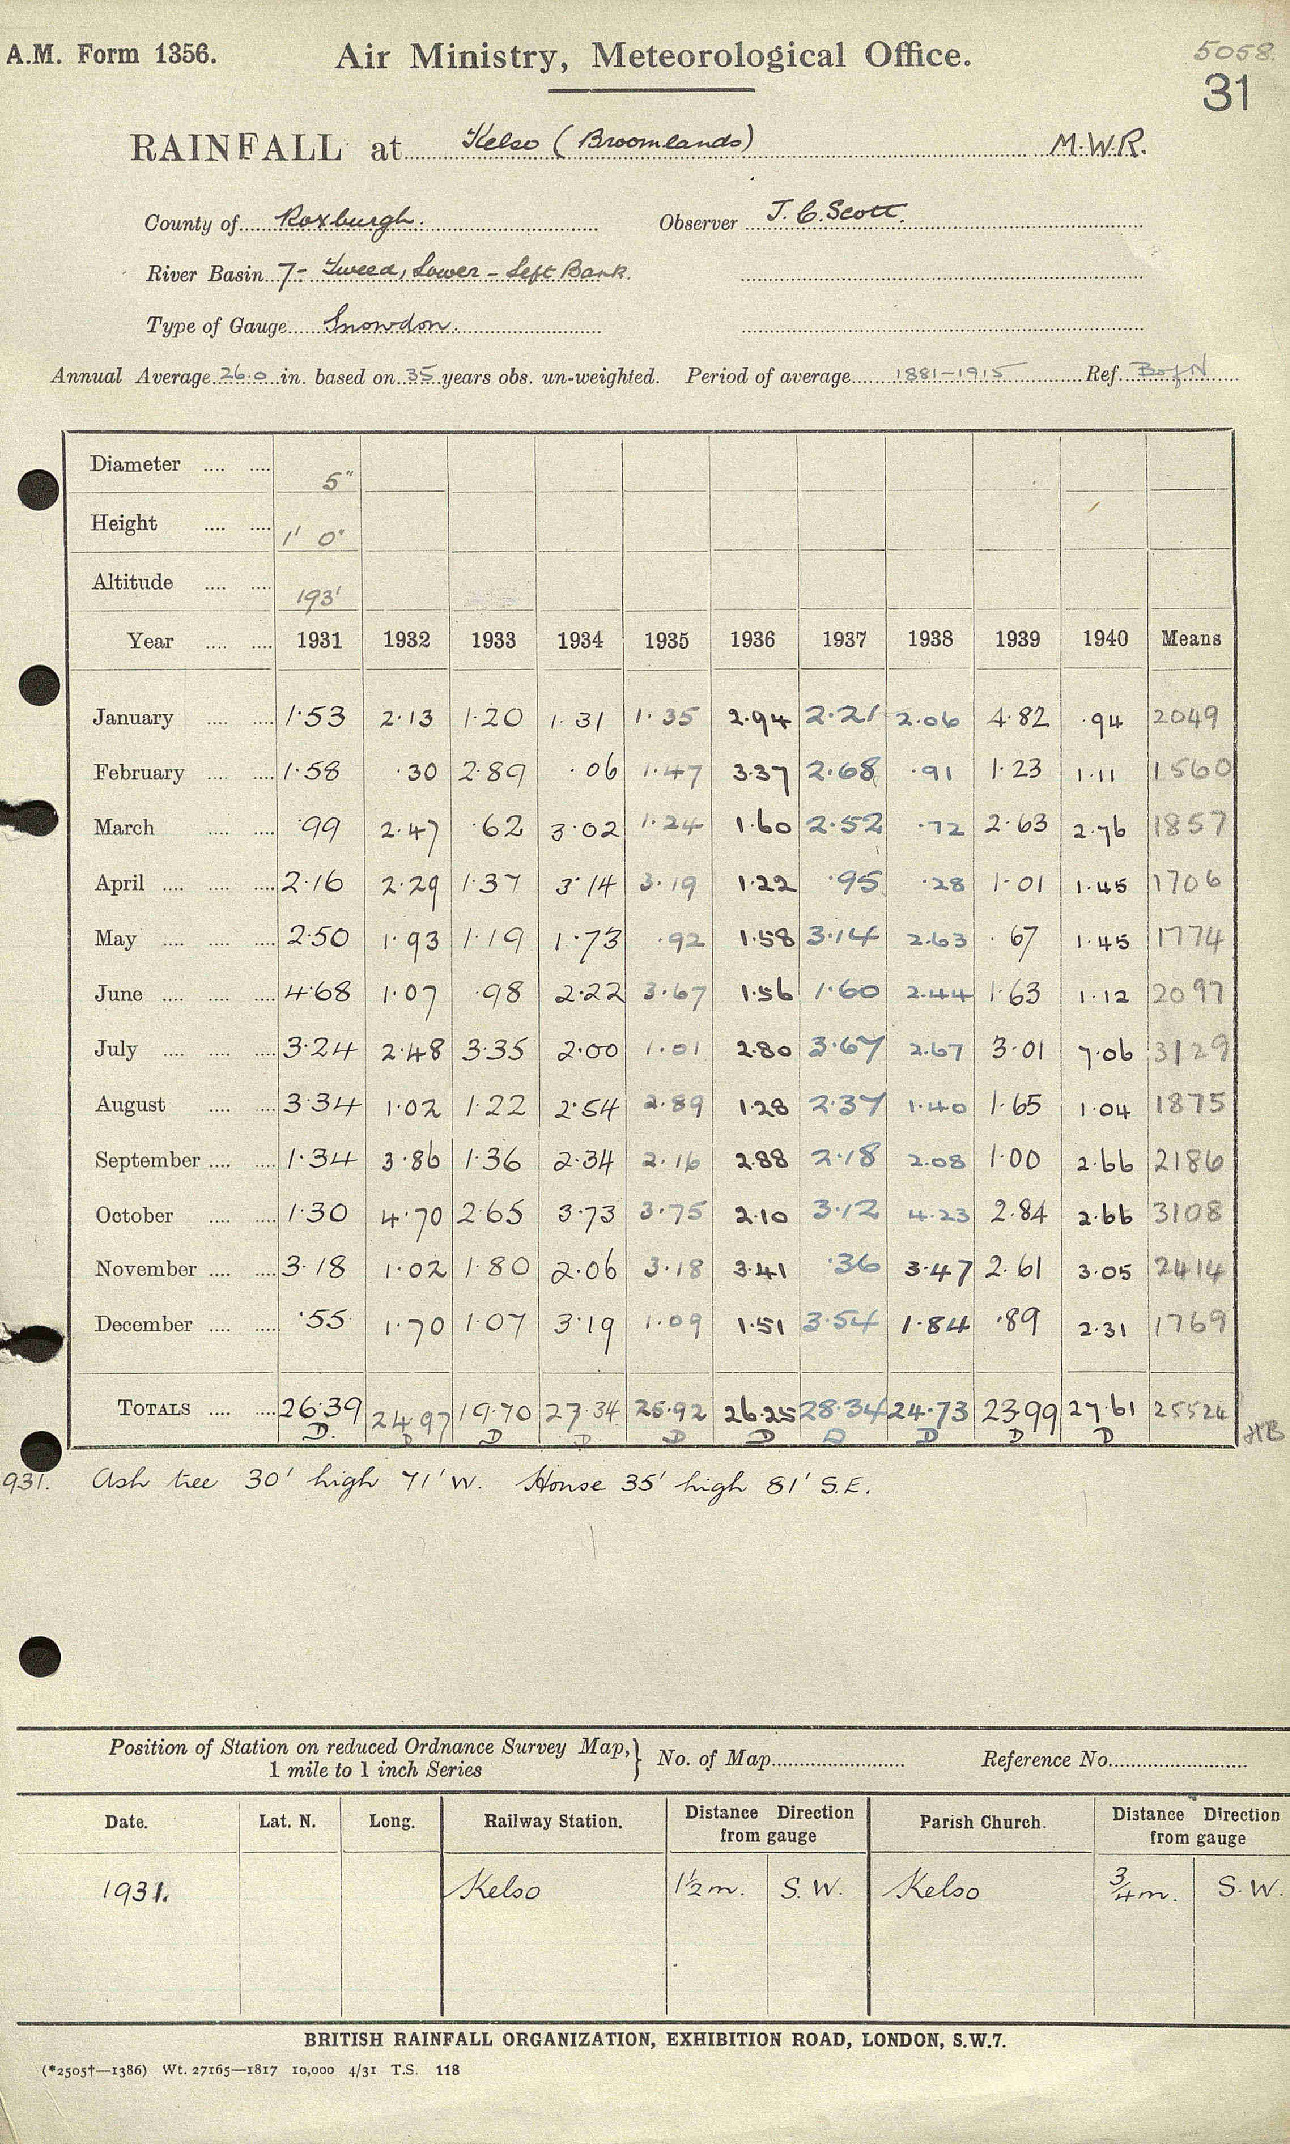 A.M. Form 1356. Air Ministry, Meteorological Office. 5058.
31
RAINFALL at Kelso (Broomlands) M.W.R.
County of Roxburgh. Observer J. C. Scott.
River Basin 7- Tweed, Lower - Left Bank.
Type of Gauge Snowdon.
Annual Average 26.0 in. based on 35 years obs. un-weighted. Period of average 1881-1915 Ref. B of N
Diameter 5"
Height 1' 0"
Altitude 193'
Year 1931 1932 1933 1934 1935 1936 1937 1938 1939 1940 Means
January 1.53 2.13 1.20 1.31 1.35 2.94 2.21 2.06 4.82 .94 2049
February 1.58 .30 2.89 .06 1.47 3.37 2.68 .91 1.23 1.11 1560
March .99 2.47 .62 3.02 1.24 1.60 2.52 .72 2.63 2.76 1857
April 2.16 2.29 1.37 3.14 3.19 1.22 .95 .28 1.01 1.45 1706
May 2.50 1.93 1.19 1.73 .92 1.58 3.14 2.63 .67 1.45 1774
June 4.68 1.07 .98 2.22 3.67 1.56 1.60 2.44 1.63 1.12 2097
July 3.24 2.48 3.35 2.00 1.01 2.80 3.67 2.67 3.01 7.06 3129
August 3.34 1.02 1.22 2.54 2.89 1.28 2.37 1.40 1.65 1.04 1875
September 1.34 3.86 1.36 2.34 2.16 2.88 2.18 2.08 1.00 2.66 2186
October 1.30 4.70 2.65 3.73 3.75 2.10 3.12 4.23 2.84 2.66 3108
November 3.18 1.02 1.80 2.06 3.18 3.41 .36 3.47 2.61 3.05 2414
December .55 1.70 1.07 3.19 1.09 1.51 3.54 1.84 .89 2.31 1769
TOTALS 26.39 24.97 19.70 27.34 25.92 26.25 28.34 24.73 23.99 27.61 25524
D. D D D D D D D D D HB
931. Ash tree 30' high 71' W. House 35' high 81' S.E.
Position of Station on reduced Ordnance Survey Map, 1 mile to 1 inch Series } No. of Map Reference No.
Date. Lat. N. Long. Railway Station. Distance Direction from gauge Parish Church. Distance Direction from gauge
1931. Kelso 1½ m. S.W. Kelso ¾ m. S.W.
BRITISH RAINFALL ORGANIZATION, EXHIBITION ROAD, LONDON, S.W.7.
(*2505†—1386) Wt. 27165—1817 10,000 4/31 T.S. 118